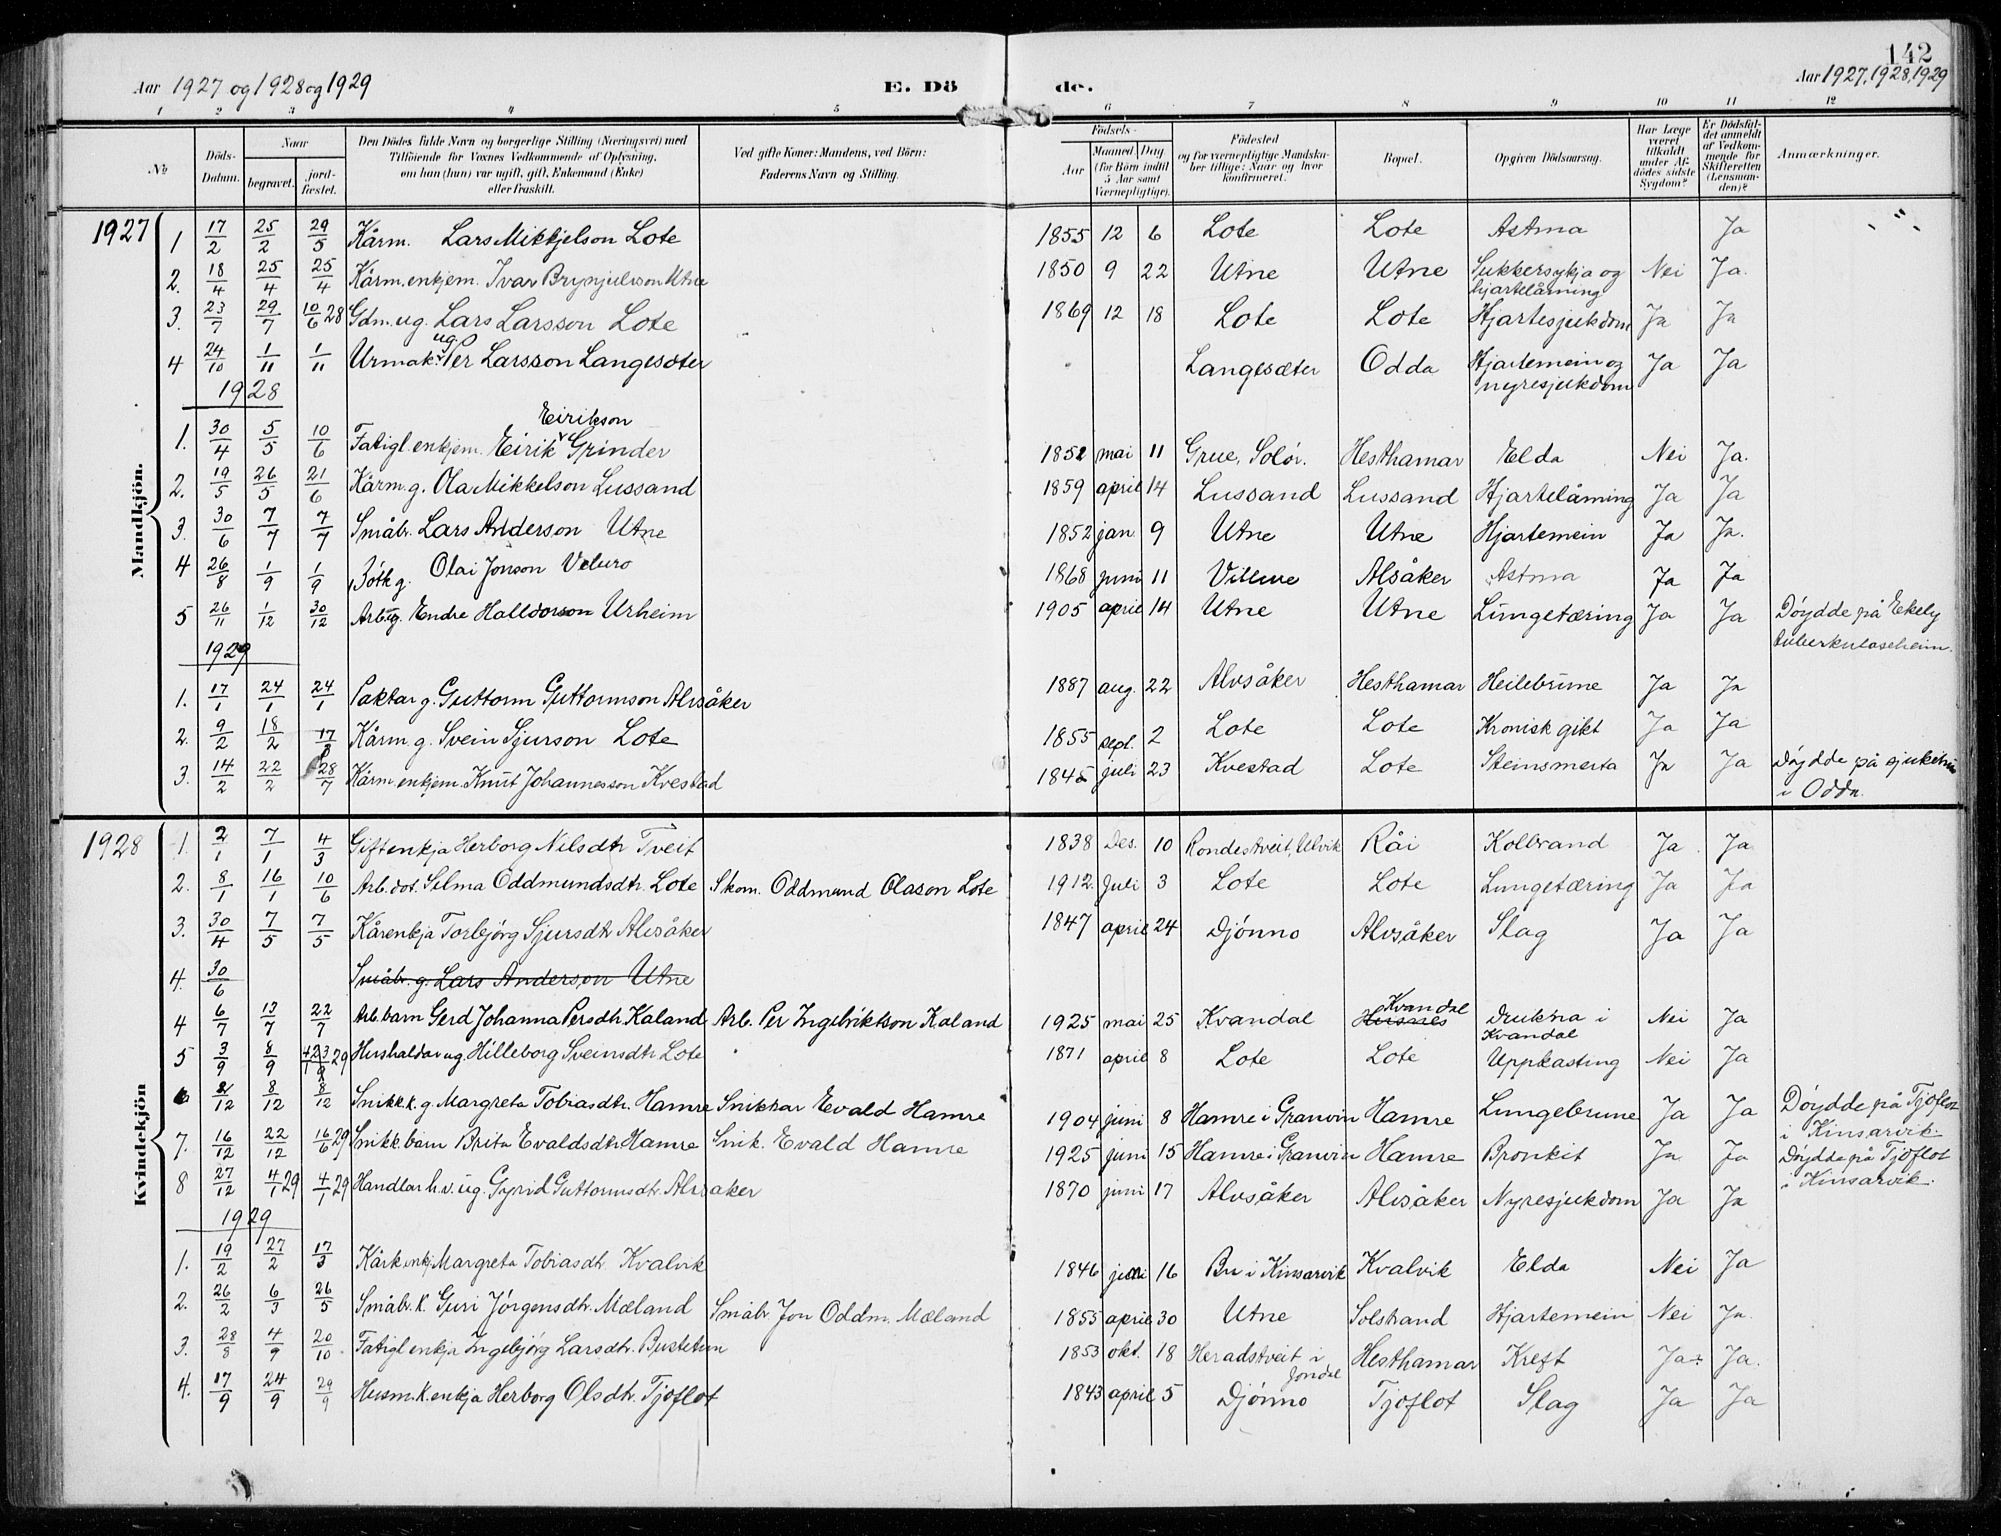 142
Aar 1927 og 1928 og 1929 E. Dö de. Aar 1927, 1928, 1929
1 2 3 4 5 6 7 8 9 10 11 12
No Döds-Datum. Naar begravet. jord-fæstet. Den Dödes fulde Navn og borgerlige Stilling (Næringsvei) med Tilföiende for Voxnes Vedkommende af Oplysning, om han (hun) var ugift, gift, Enkemand (Enke) eller fraskilt. Ved gifte Koner: Mandens, ved Börn: Faderens Navn og Stilling. Födsels- Aar Maaned Dag (for Börn indtil 5 Aar samt Værnepligtige). Födested og for værnepligtige Mandskaber tillige: Naar og hvor konfirmeret. Bopæl. Opgiven Dödsaarsag. Har Læge været tilkaldt under Afdödes sidste Sygdom? Er Dödsfaldet anmeldt af Vedkommende for Skifteretten (Lensmanden)? Anmærkninger.
Mandkjön.
1927
1 17/2 25/2 29/5 Kårm. Lars Mikkjelson Lote 1855 12 6 Lote Lote Astma Ja
2. 18/4 25/4 25/4 Kårm. enkjem. Ivar Brynjulvson Utne 1850 9 22 Utne Utne Sukkersykja og hjartelåming Nei Ja.
3. 23/7 29/7 10/6 28 Gdm. ug. Lars Larsson Lote 1869 12 18 Lote Lote Hjartesjukdom Ja Ja
4 24/10 1/11 1/11 Urmak. ug. Per Larsson Langesæter Langesæter Odda Hjartemein og nyresjukdom Ja Ja
1928
1. 30/4 5/5 10/6 Fatigl. enkjem. Eirik Eirikson Grinder 1852 mai 11 Grue, Solør. Hesthamar Elda Nei Ja.
2. 19/5 26/5 21/6 Kårm. g. Ola Mikkelson Lussand 1859 april 14 Lussand Lussand Hjartelåming Ja Ja
3. 30/6 7/7 7/7 Småbr. Lars Anderson Utne 1852 jan. 9 Utne Utne Hjartemein Ja Ja.
4 26/8 1/9 1/9 Bótk g. Olai Jonson Veluro 1868 juni 11 Alsåker Astma Ja Ja
5 26/11 1/12 30/12 Arb. ug. Endre Halldorson Urheim 1905 april 14 Utne Utne Lungetæring Ja Ja Döydde på Ekely tuberkuloseheim.
1929
1. 17/1 24/1 24/1 Paktar g. Guttorm Guttormson Alvsåker 1887 aug. 22 Alvsåker Hesthamar Heilebrune Ja Ja
2. 9/2 18/2 17/3 Kårm. g. Svein Sjurson Lote 1855 sept. 2 Lote Lote Kronisk gikt Ja Ja
3. 14/2 22/2 28/7 Kårm. enkjem. Knut Johannesson Kvestad 1845 juli 23 Kvestad Lote Steinsmerta Ja Ja Döydde på sjukehus i Odda.
Kvindekjön
1928
1. 2/1 7/1 4/3 Giftenkja Herborg Nilsdtr Tveit 1838 Des. 10 Rondestveit, Ulvik Råi Kolbrand Ja Ja
2. 8/1 16/1 10/6 Arb. dot. Selma Oddmundsdtr. Lote Skom. Oddmund Olason Lote 1912. Juli 3 Lote Lote Lungetæring Ja Ja
3. 30/4 7/5 7/5 Kårenkja Torbjørg Sjursdtr Alvsåker 1847 april 24 Djønno Alvsåker Slag Ja Ja
4. 30/6 Småbr. g. Lars Anderson Utne
4 6/7 13/7 22/7 Arb. barn Gerd Johanna Persdtr. Kaland Arb. Per Ingebriktson Kaland 1925 mai 25 Kvandal Hesnes Kvandal Drukna i Kvandal Nei Ja
5 3/9 8/9 29 Hushaldar ug. Hilleborg Sveinsdtr Lote 1871 april 8 Lote Lote Uppkasting Nei Ja
6 2/12 8/12 8/12 Snikk.k. g. Margreta Tobiasdtr. Hamre Snikkar Evald Hamre 1904 juni 8 Hamre i Granvin Hamre Lungebrune Ja Ja Döydde på Tjoflot i Kinsarvik.
7. 16/12 22/12 16/6 29 Snikk. barn Brita Evaldsdtr. Hamre Snik. Evald Hamre 1925 juni 15 Hamre i Granvin Hamre Bronkit Ja Ja Döydde på Tjoflot i Kinsarvik.
8 27/12 4/1 29 4/1 29 Handlar h.v. ug. Gyrid Guttormsdtr. Alvsaker 1870 juni 17 Alvsåker Alvsåker Nyresjukdom Ja Ja
1929
1. 19/2 27/2 17/3 Kårk enkj. Margreta Tobiasdtr. Kvalvik 1846 16 Bu i Kinsarvik Kvalvik Elda Nei Ja
2. 26/2 6/3 26/5 Småbr. k. Guri Jørgensdtr. Mæland Småbr. Jon Oddm. Mæland 1855 april 30 Utne Solstrand Hjartemein Nei Ja.
3. 28/8 4/9 20/10 Fatigl enkja Ingebjörg Larsdtr. Bustetun 1853 okt. 18 Heradstveit i Jondal Hesthamar Kreft Ja. Ja.
4. 17/9 24/9 29/9 Husm.k. enkja Herborg Olsdtr. Tjoflot 1843 april 5 Djønno Tjoflot Slag Ja Ja